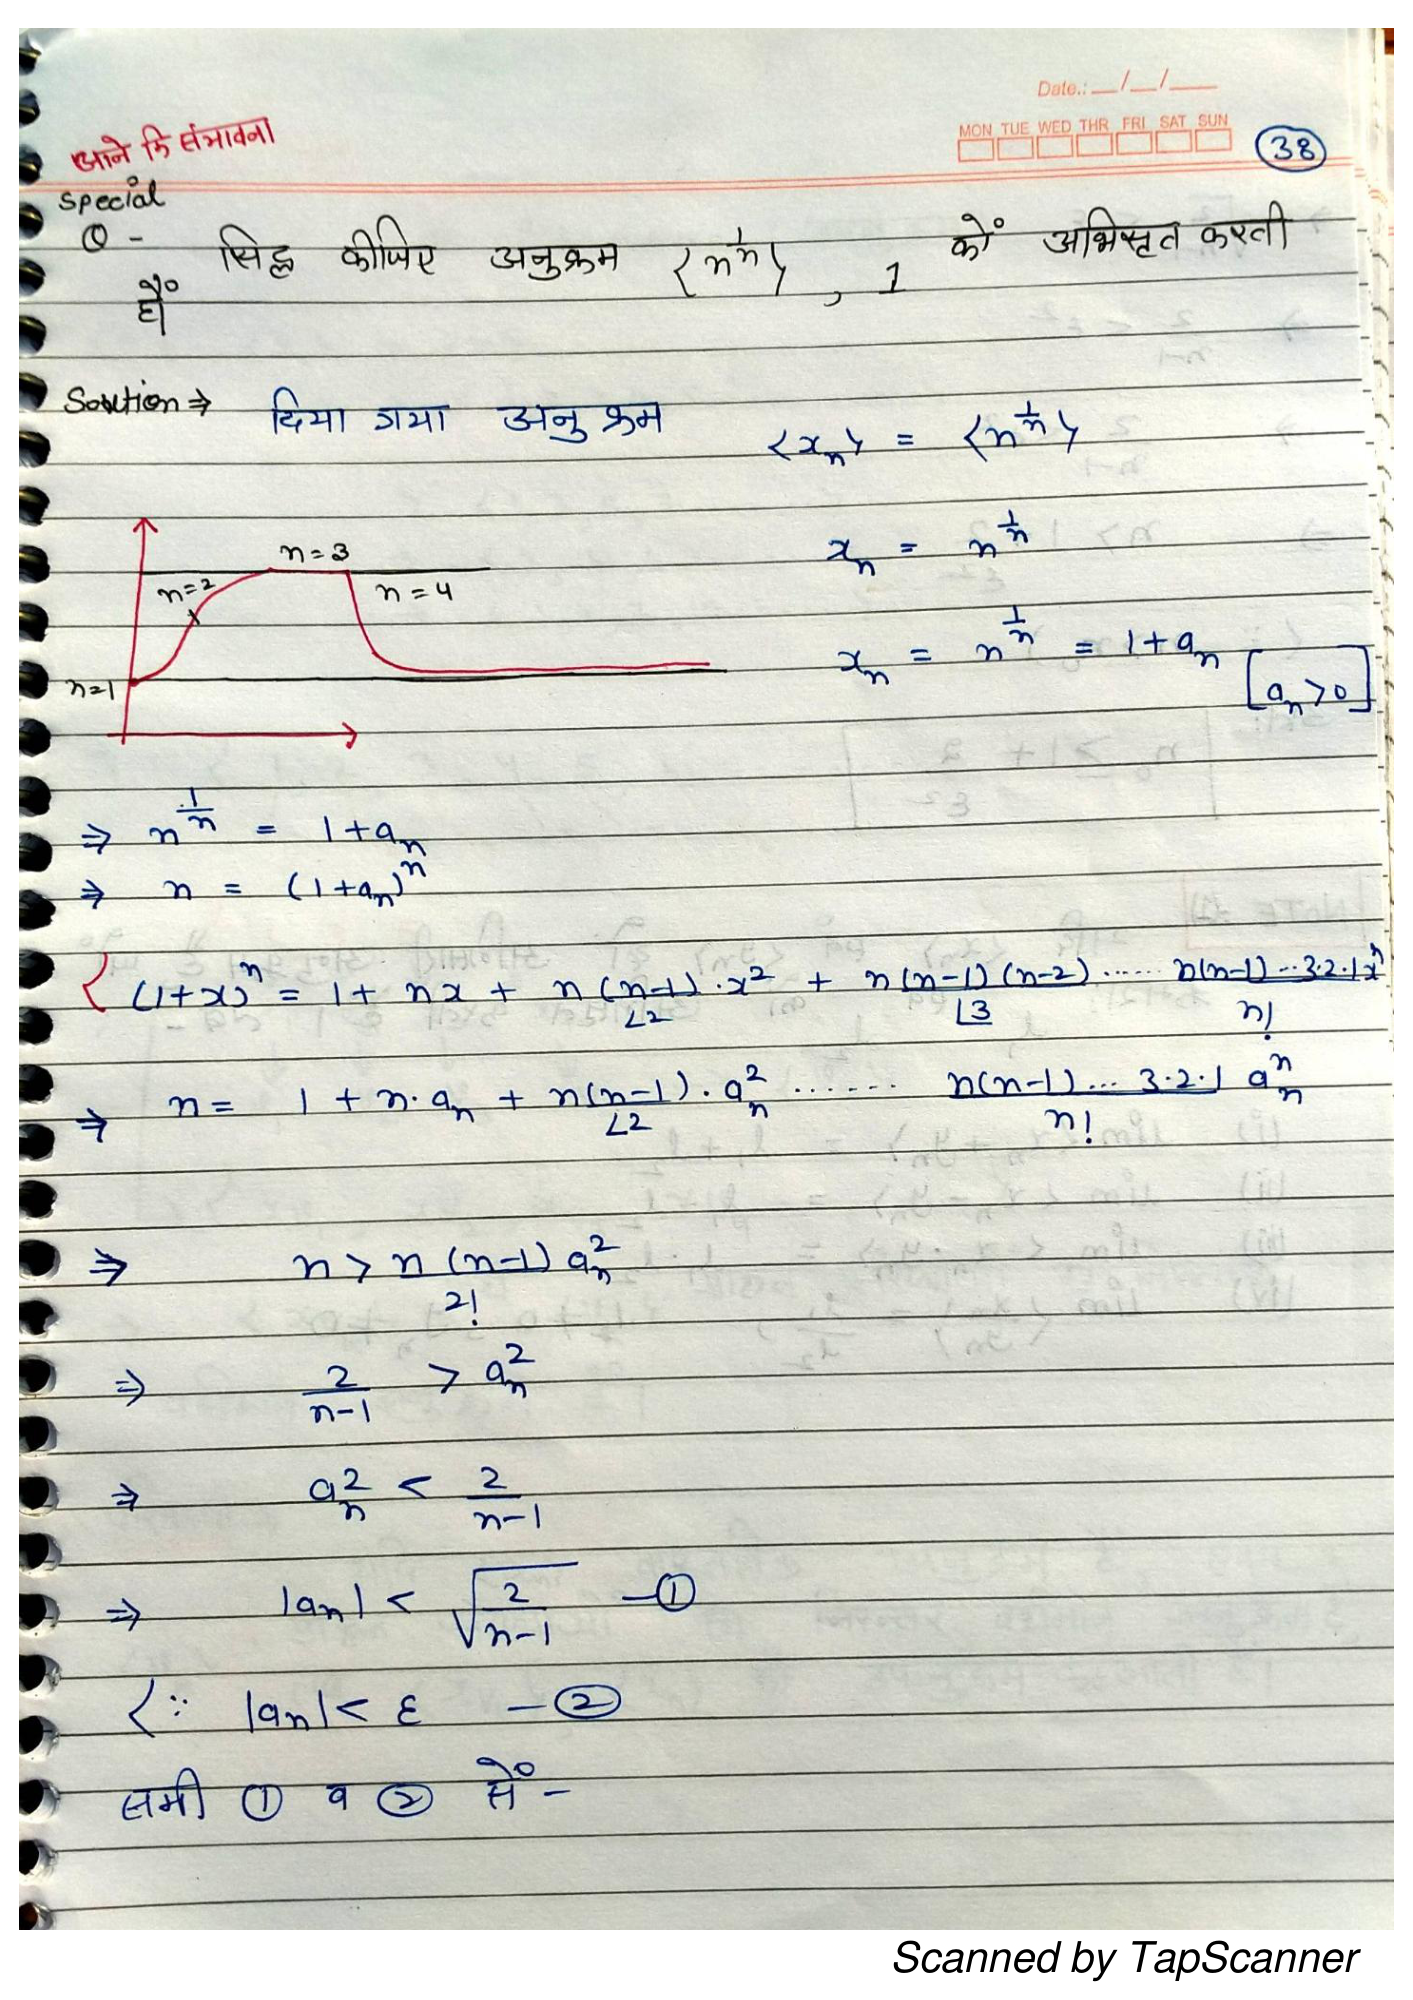 Date.: __/__/___
MON TUE WED THR FRI SAT SUN
आने कि संभावना
38
Special
Q - सिद्ध कीजिए अनुक्रम <n^(1/n)>, 1 को अभिसृत करती
है
Solution ⇒ दिया गया अनुक्रम <xₙ> = <n^(1/n)>
xₙ = n^(1/n)
n=3
n=2
n=4
n=1
xₙ = n^(1/n) = 1+aₙ [aₙ>0]
⇒ n^(1/n) = 1+aₙ
⇒ n = (1+aₙ)ⁿ
{ (1+x)ⁿ = 1 + nx + n(n-1)/∠2 · x² + n(n-1)(n-2)/∠3 ...... n(n-1)...3·2·1/n! xⁿ
⇒ n = 1 + n·aₙ + n(n-1)/∠2 · aₙ² ...... n(n-1)...3·2·1/n! aₙⁿ
⇒ n > n(n-1)/2! aₙ²
⇒ 2/(n-1) > aₙ²
⇒ aₙ² < 2/(n-1)
⇒ |aₙ| < √(2/(n-1)) —①
{∵ |aₙ| < ε —②
समी ① व ② से -
Scanned by TapScanner